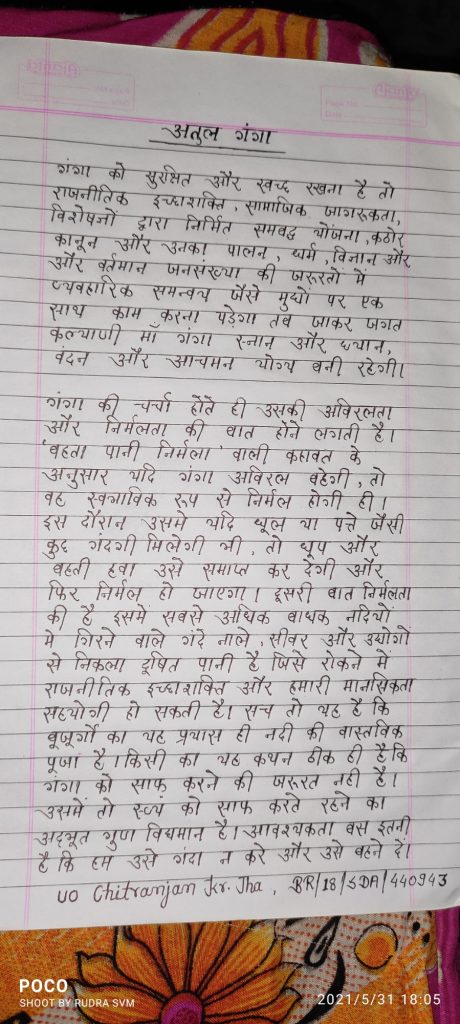 अतुल गंगा
गंगा को सुरक्षित और स्वच्छ रखना है तो
राजनीतिक इच्छाशक्ति, सामाजिक जागरूकता,
विशेषज्ञों द्वारा निर्मित समवद्ध योजना, कठोर
कानून और उनका पालन, धर्म, विज्ञान और
और वर्तमान जनसंख्या की जरूरतों में
व्यवहारिक समन्वय जैसे मुद्दों पर एक
साथ काम करना पड़ेगा तव जाकर जगत
कल्याणी माँ गंगा स्नान और ध्यान,
वंदन और आचमन योग्य वनी रहेगी।
गंगा की चर्चा होते ही उसकी अविरलता
और निर्मलता की वात होने लगती है।
'वहता पानी निर्मला' वाली कहावत के
अनुसार यदि गंगा अविरल वहेगी, तो
वह स्वभाविक रूप से निर्मल होगी ही।
इस दौरान उसमे यदि धूल या पत्ते जैसी
कुछ गंदगी मिलेगी भी, तो धूप और
वहती हवा उसे समाप्त कर देगी और
फिर निर्मल हो जाएगा। दूसरी वात निर्मलता
की है इसमें सबसे अधिक वाधक नदियों
मे गिरने वाले गंदे नाले, सीवर और उद्योगों
से निकला दूषित पानी है जिसे रोकने में
राजनीतिक इच्छाशक्ति और हमारी मानसिकता
सहयोगी हो सकती है। सच तो यह है कि
वूजूर्गो का यह प्रयास ही नदी की वास्तविक
पूजा है। किसी का यह कथन ठीक ही है कि
गंगा को साफ करने की जरूरत नही है।
उसमें तो स्व्यं को साफ करते रहने का
अद्भूत गुण विद्यमान है। आवश्यकता वस इतनी
है कि हम उसे गंदा न करे और उसे वहने दें।
UO Chitranjan Kr. Jha, BR/18/SDA/440943
POCO
SHOOT BY RUDRA SVM
2021/5/31 18:05